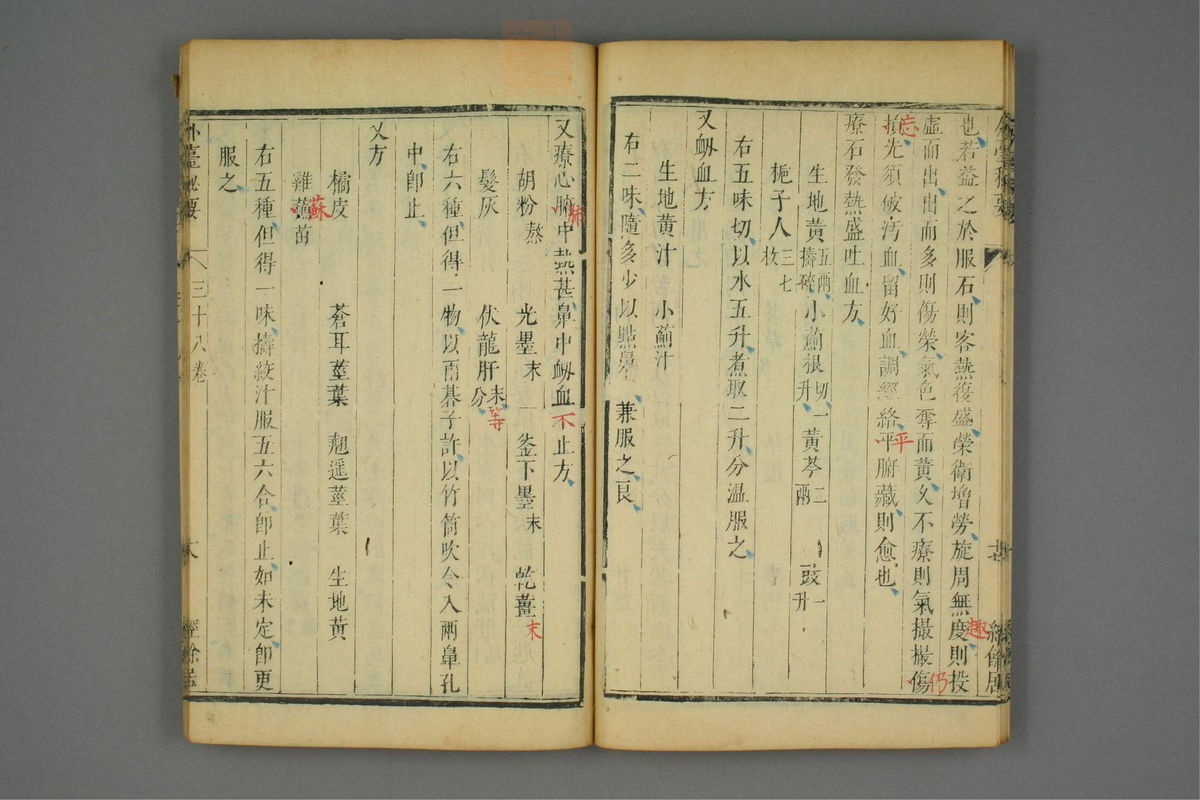 也若益之於服石則客熱復盛榮衛增勞旋周無度則投
趣
虛而出出而多則傷榮氣色奪而黃久不療則氣撮撮傷
仍
損先須攸汚血留好血調經絡平腑藏則愈也
忘
平
療石發熱盛吐血方
生地黃五兩擣碎 小薊根切一升 黃芩二兩 豉一升
梔子人三七枚
右五味切以水五升煮取二升分温服之
又衂血方
生地黃汁 小薊汁
右二味隨多少以點鼻兼服之良
又療心腑中熱甚鼻中衂血不止方
肺
胡粉熬 光墨末 釜下墨末 乾薑末
髮灰 伏龍肝末等分
右六種但得一物以兩碁子許以竹筒吹令入兩鼻孔
中卽止
又方
橘皮 蒼耳莖葉 翹遥莖葉 生地黃
雞蘓苗
蘇
右五種但得一味擣絞汁服五六合卽止如未定卽更
服之
外臺秘要 三十八卷 經餘居